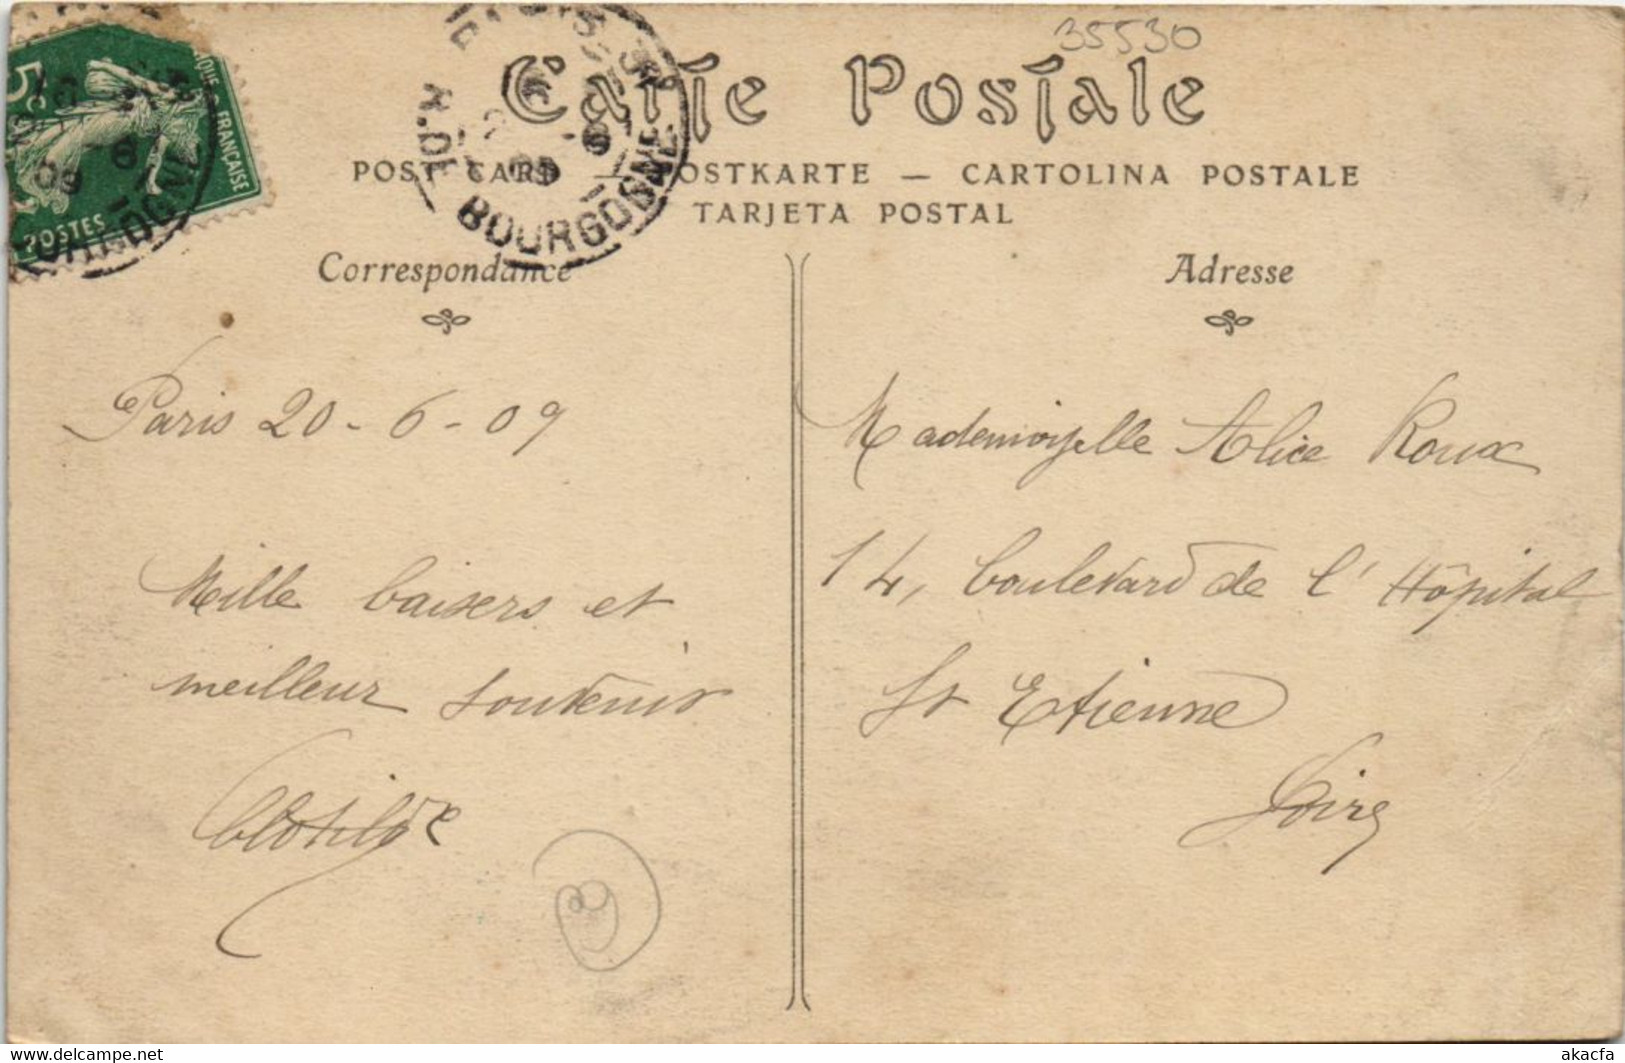 35530
Carte Postale
POST CARD — POSTKARTE — CARTOLINA POSTALE
TARJETA POSTAL
Correspondance
Adresse
5c
POSTES
FRANÇAISE
R. DE BOURGOGNE
09
Paris 20-6-09
Mille baisers et
meilleur souvenir
Clotilde
Mademoiselle Alice Roux
14, boulevard de l'Hôpital
St Etienne
Loire
8
delcampe.net
akacfa